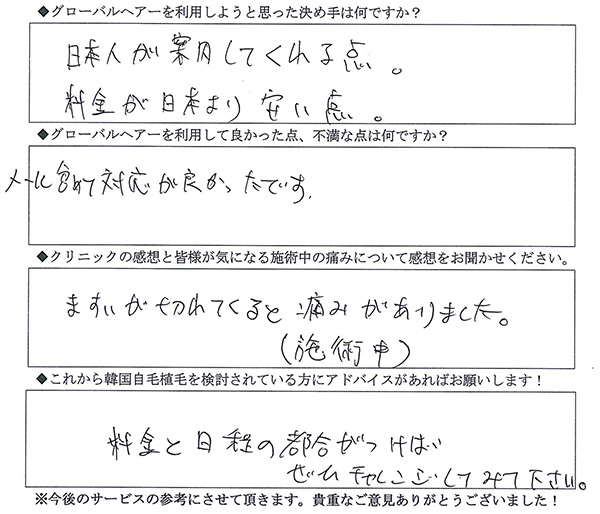 ◆グローバルヘアーを利用しようと思った決め手は何ですか？
日本人が案内してくれる点。
料金が日本より安い点。
◆グローバルヘアーを利用して良かった点、不満な点は何ですか？
メール含めて対応が良かったです.
◆クリニックの感想と皆様が気になる施術中の痛みについて感想をお聞かせください。
ますいが切れてくると痛みがありました。
(施術中)
◆これから韓国自毛植毛を検討されている方にアドバイスがあればお願いします！
料金と日程の都合がつけば
ぜひチャレンジしてみて下さい。
※今後のサービスの参考にさせて頂きます。貴重なご意見ありがとうございました！